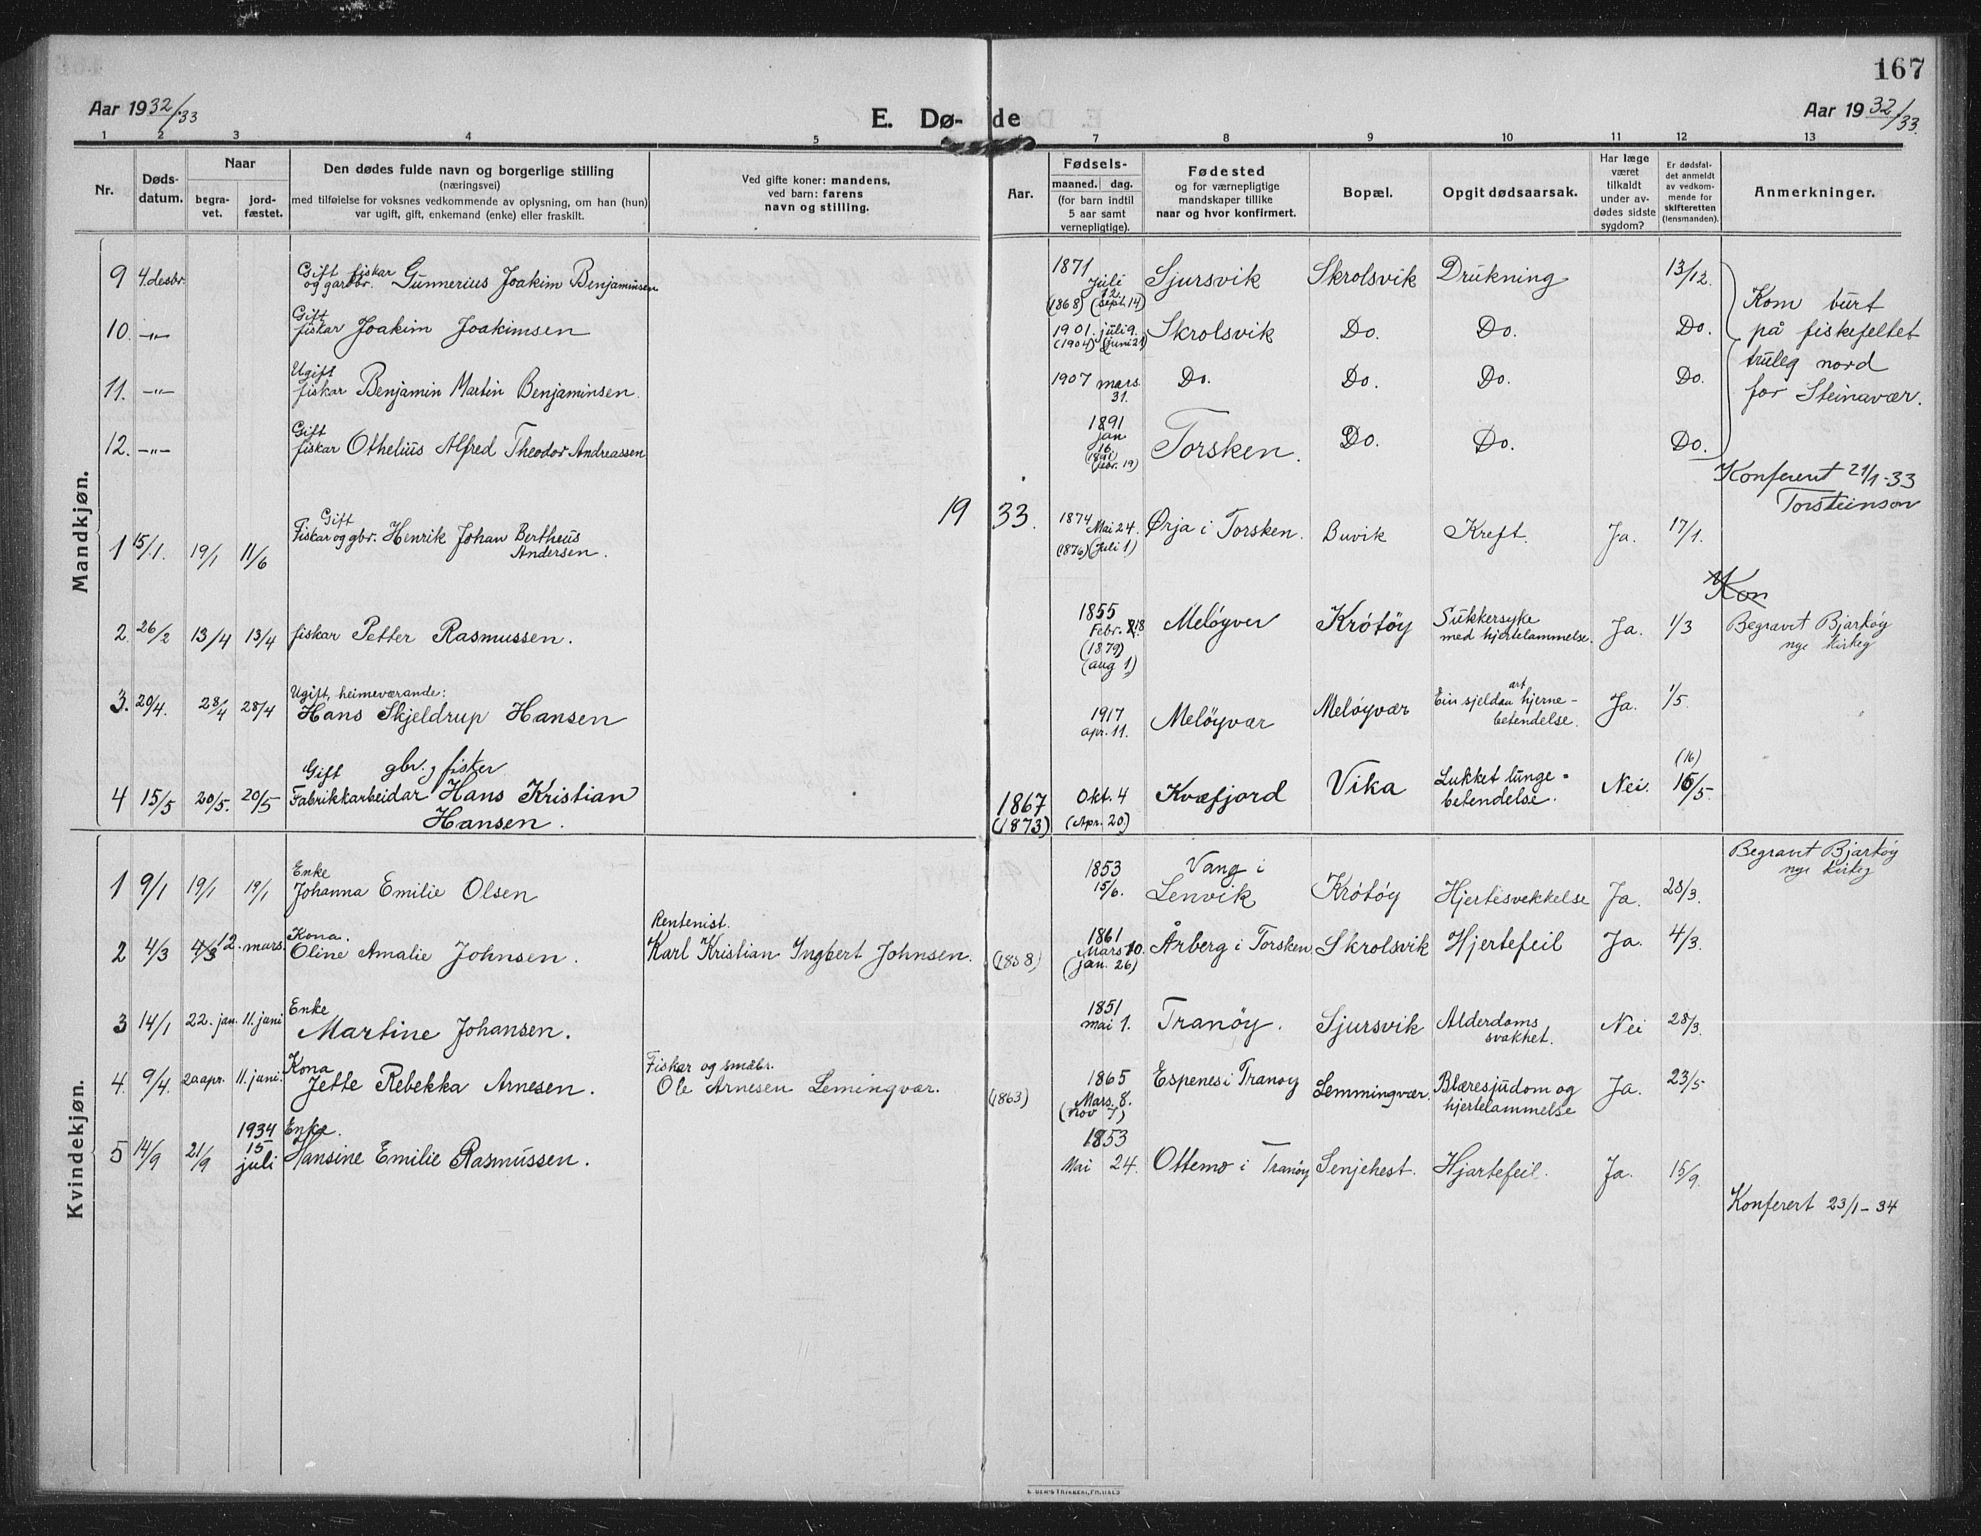 167
Aar 1932/33
E. Dø- de
Aar 1932/33
1 2 3 4 5 7 8 9 10 11 12 13
Nr.
Døds-
datum.
Naar
begra-
vet.
jord-
fæstet.
Den dødes fulde navn og borgerlige stilling
(næringsvei)
med tilføielse for voksnes vedkommende av oplysning, om han (hun)
var ugift, gift, enkemand (enke) eller fraskilt.
Ved gifte koner: mandens,
ved barn: farens
navn og stilling.
Aar.
Fødsels-
maaned. dag.
(for barn indtil
5 aar samt
vernepligtige).
Fødested
og for værnepligtige
mandskaper tillike
naar og hvor konfirmert.
Bopæl.
Opgit dødsaarsak.
Har læge
været
tilkaldt
under av-
dødes sidste
sygdom?
Er dødsfal-
det anmeldt
av vedkom-
mende for
skifteretten
(lensmanden).
Anmerkninger.
Mandkjøn.
9 4. desbr. Gift fiskar og gardbr. Gunnerius Joakim Benjaminsen 1871 Juli 12. (1868) (sept. 14) Sjursvik Skrolsvik Drukning 13/12.
10. -"- Gift fiskar Joakim Joakimsen 1901. juli 9. (1904) (juni 21) Skrolsvik Do. Do. Do.
11. -"- Ugift fiskar Benjamin Martin Benjaminsen. 1907 mars 31. Do. Do. Do. Do.
12. -"- Gift fiskar Othelius Alfred Theodor Andreassen 1891 jan 16. (1891) (febr. 19) Torsken. Do. Do. Do.
Kom burt
på fiskefeltet
truleg nord
for Steinavær.
Konferert 21/1-33
Torsteinson
19 33.
1 15/1. 19/1 11/6 Gift Fiskar og gbr. Henrik Johan Bertheus Andersen. 1874 Mai 24. (1876) (Juli 1) Ørja i Torsken. Buvik Kreft. Ja. 17/1.
Kon
2. 26/2 13/4 13/4 fiskar Petter Rasmussen. 1855 Febr. 18 (1879) (aug 1) Meløyver Krøtøy Sukkersyke med hjertelammelse. Ja. 1/3 Begravet Bjarkøy nye kirkeg
3. 20/4. 28/4 28/4 Ugift, heimeværande: Hans Skjeldrup Hansen 1917 apr. 11. Meløyvær Meløyvær Ein sjeldan art hjerne-betendelse. Ja. 1/5.
4 15/5 20/5. 20/5 Gift gbr., fisker Fabrikkarbeidar Hans Kristian Hansen. 1867 (1873) Okt. 4 (Apr. 20.) Kvæfjord Vika Lukket lunge-betendelse. Nei. (16) 16/5.
Kvindekjøn.
1 9/1 19/1 19/1 Enke Johanna Emilie Olsen 1853 15/6. Vang i Lenvik Krøtøy Hjertesvekkelse Ja. 28/3. Begravet Bjarkøy nye kirkeg
2 4/3 4/3 12. mars. Kona. Oline Amalie Johnsen. Rentenist. Karl Kristian Ingbert Johnsen. (1858) 1861 Mars 10. (jan. 26) Årberg i Torsken Skrolsvik Hjertefeil Ja. 4/3.
3 14/1 22. jan. 11. juni Enke Martine Johansen. 1851 mai 1. Tranøy. Sjursvik Alderdoms svakhet. Nei 28/3.
4. 9/4. 20 apr. 11. juni. Kona Jette Rebekka Arnesen. Fiskar og småbr. Ole Arnesen Lemingvær. (1863) 1865 Mars. 8. (nov 7) Espenes i Tranøy Lemmingvær. Blæresjudom og hjertelammelse Ja. 23/5
5 14/9 21/9 1934 15 juli Enke. Hansine Emilie Rasmussen. 1853 Mai 24. Ottemo i Tranøy Senjehest. Hjartefeil. Ja. 15/9.
Konferert 23/1-34